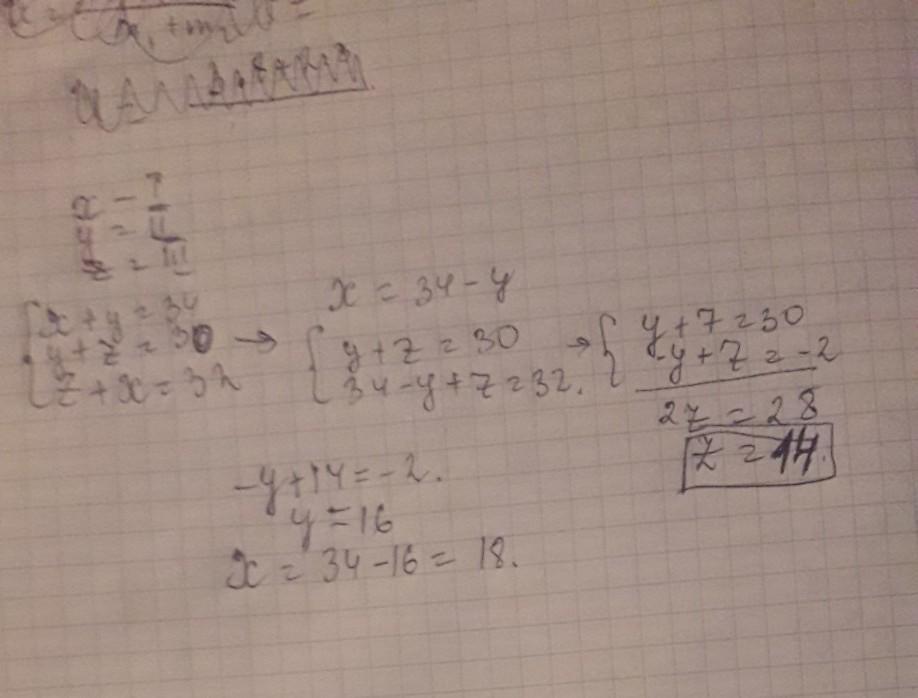 x - I
y = II
z = III
x + y = 34
y + z = 30
z + x = 32
→
x = 34 - y
y + z = 30
34 - y + z = 32.
→
y + z = 30
-y + z = -2
2z = 28
z = 14.
-y + 14 = -2.
y = 16
x = 34 - 16 = 18.